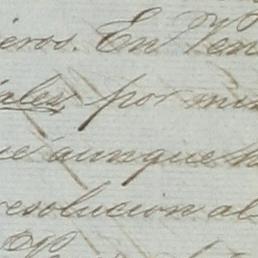 eros. En Ven
ales, por mi
ue aunque h
esolucion al